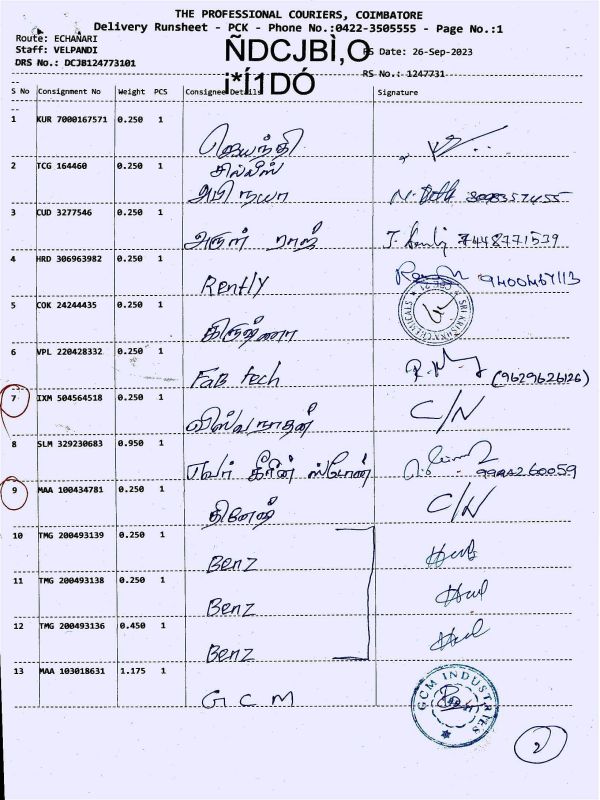 THE PROFESSIONAL COURIERS, COIMBATORE
Delivery Runsheet - PCK - Phone No.:0422-3505555 - Page No.:1
Route: ECHANARI
Staff: VELPANDI
DRS No.: DCJB124773101
ÑDCJBÌ,O
¡*Í1DÓ
RS Date: 26-Sep-2023
RS No.: 1247731
S No Consignment No Weight PCS Consignee Details Signature
1 KUR 7000167571 0.250 1
ஜெயந்தி
சில்லீஸ்
2 TCG 164460 0.250 1
அபிநயா
3 CUD 3277546 0.250 1
அருள் ராஜ் 7448771539
4 HRD 306963982 0.250 1
Rently 9400467113
5 COK 24244435 0.250 1
கிருஷ்ணா
SRI KRISHNA CHEMICALS
6 VPL 220428332 0.250 1
FaB tech (9629626126)
7 IXM 504564518 0.250 1
விஸ்வநாதன் C/N
8 SLM 329230683 0.950 1
பவர் கிரீன் ஸ்டோன்
9 MAA 100434781 0.250 1
தினேஷ் C/N
10 TMG 200493139 0.250 1
Benz
11 TMG 200493138 0.250 1
Benz
12 TMG 200493136 0.450 1
Benz
13 MAA 103018631 1.175 1
GCM
GCM INDUSTRIES
2